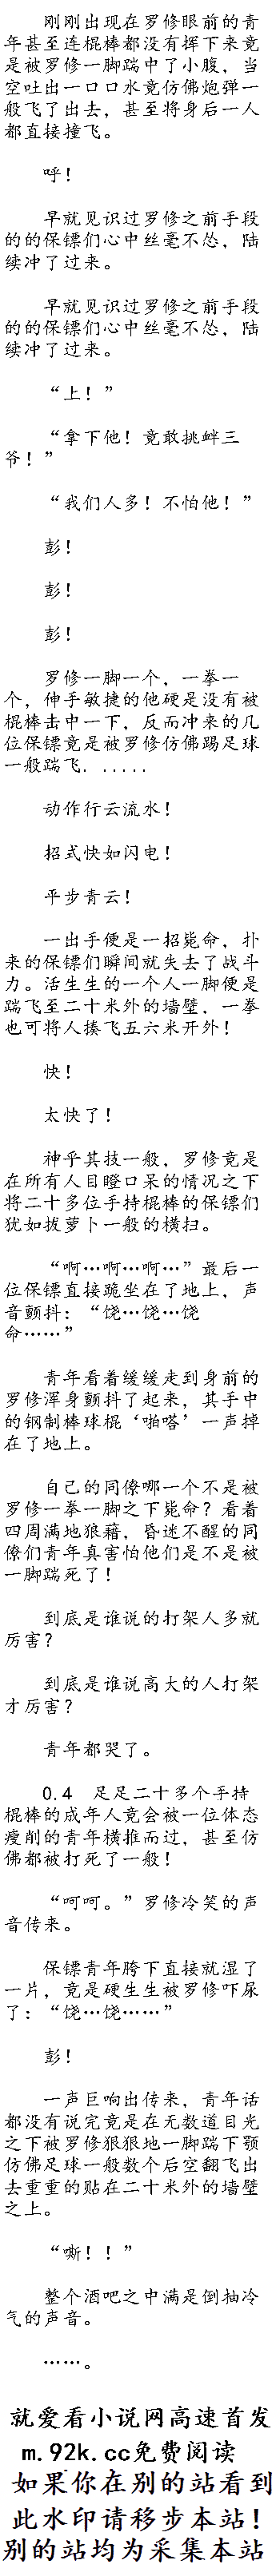 刚刚出现在罗修眼前的青
年甚至连棍棒都没有挥下来竟
是被罗修一脚踹中了小腹，当
空吐出一口口水竟仿佛炮弹一
般飞了出去，甚至将身后一人
都直接撞飞。
呼！
早就见识过罗修之前手段
的的保镖们心中丝毫不怂，陆
续冲了过来。
早就见识过罗修之前手段
的的保镖们心中丝毫不怂，陆
续冲了过来。
“上！”
“拿下他！竟敢挑衅三
爷！”
“我们人多！不怕他！”
彭！
彭！
彭！
罗修一脚一个，一拳一
个，伸手敏捷的他硬是没有被
棍棒击中一下，反而冲来的几
位保镖竟是被罗修仿佛踢足球
一般踹飞. .....
动作行云流水！
招式快如闪电！
平步青云！
一出手便是一招毙命，扑
来的保镖们瞬间就失去了战斗
力。活生生的一个人一脚便是
踹飞至二十米外的墙壁，一拳
也可将人揍飞五六米开外！
快！
太快了！
神乎其技一般，罗修竟是
在所有人目瞪口呆的情况之下
将二十多位手持棍棒的保镖们
犹如拔萝卜一般的横扫。
“啊…啊…啊…”最后一
位保镖直接跪坐在了地上，声
音颤抖：“饶…饶…饶
命……”
青年看着缓缓走到身前的
罗修浑身颤抖了起来，其手中
的钢制棒球棍‘啪嗒’一声掉
在了地上。
自己的同僚哪一个不是被
罗修一拳一脚之下毙命？看着
四周满地狼藉，昏迷不醒的同
僚们青年真害怕他们是不是被
一脚踹死了！
到底是谁说的打架人多就
厉害？
到底是谁说高大的人打架
才厉害？
青年都哭了。
0.4 足足二十多个手持
棍棒的成年人竟会被一位体态
瘦削的青年横推而过，甚至仿
佛都被打死了一般！
“呵呵。”罗修冷笑的声
音传来。
保镖青年胯下直接就湿了
一片，竟是硬生生被罗修吓尿
了：“饶…饶……”
彭！
一声巨响出传来，青年话
都没有说完竟是在无数道目光
之下被罗修狠狠地一脚踹下颚
仿佛足球一般数个后空翻飞出
去重重的贴在二十米外的墙壁
之上。
“嘶！！”
整个酒吧之中满是倒抽冷
气的声音。
……。
就爱看小说网高速首发
m.92k.cc免费阅读
如果你在别的站看到
此水印请移步本站！
别的站均为采集本站